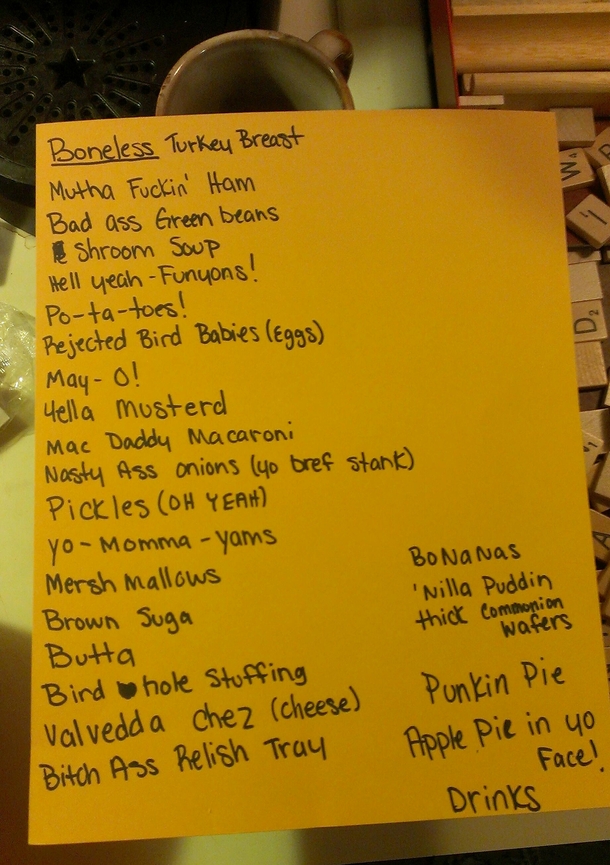 Boneless Turkey Breast
Mutha Fuckin' Ham
Bad ass Green beans
Shroom Soup
Hell yeah - Funyons!
Po-ta-toes!
Rejected Bird Babies (Eggs)
May-O!
Yella Musterd
Mac Daddy Macaroni
Nasty Ass onions (yo bref stank)
Pickles (OH YEAH)
yo-Momma-yams
Mersh mallows
Brown Suga
Butta
Bird hole Stuffing
Valvedda chez (cheese)
Bitch Ass Relish Tray
BoNaNas
'Nilla Puddin
thick Commonion
Wafers
Punkin Pie
Apple Pie in yo
Face!
Drinks
W
D2